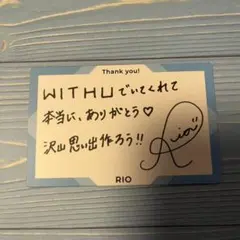 Thank you!
WITHUでいてくれて
本当に、ありがとう♡
沢山思い出作ろう!!
Rio
RIO